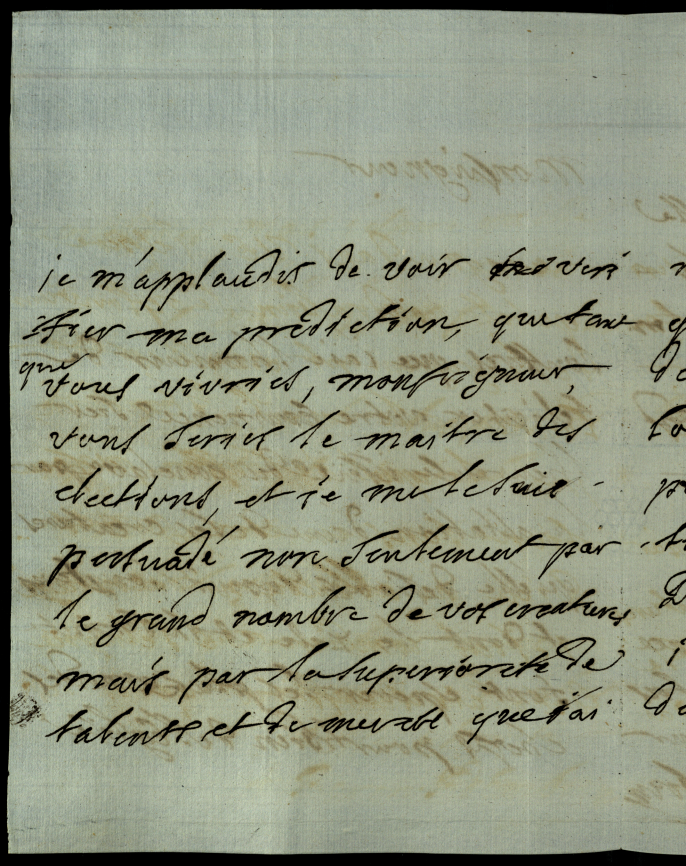 je m'applaudis de voir veri
fier ma prediction, que tant
que
vous vivriés, monseigneur,
vous seriés le maitre des
elections, et je me le suis
persuadé non seulement par
le grand nombre de vos creatures
mais par la superiorité de
talents et de merite que j'ai